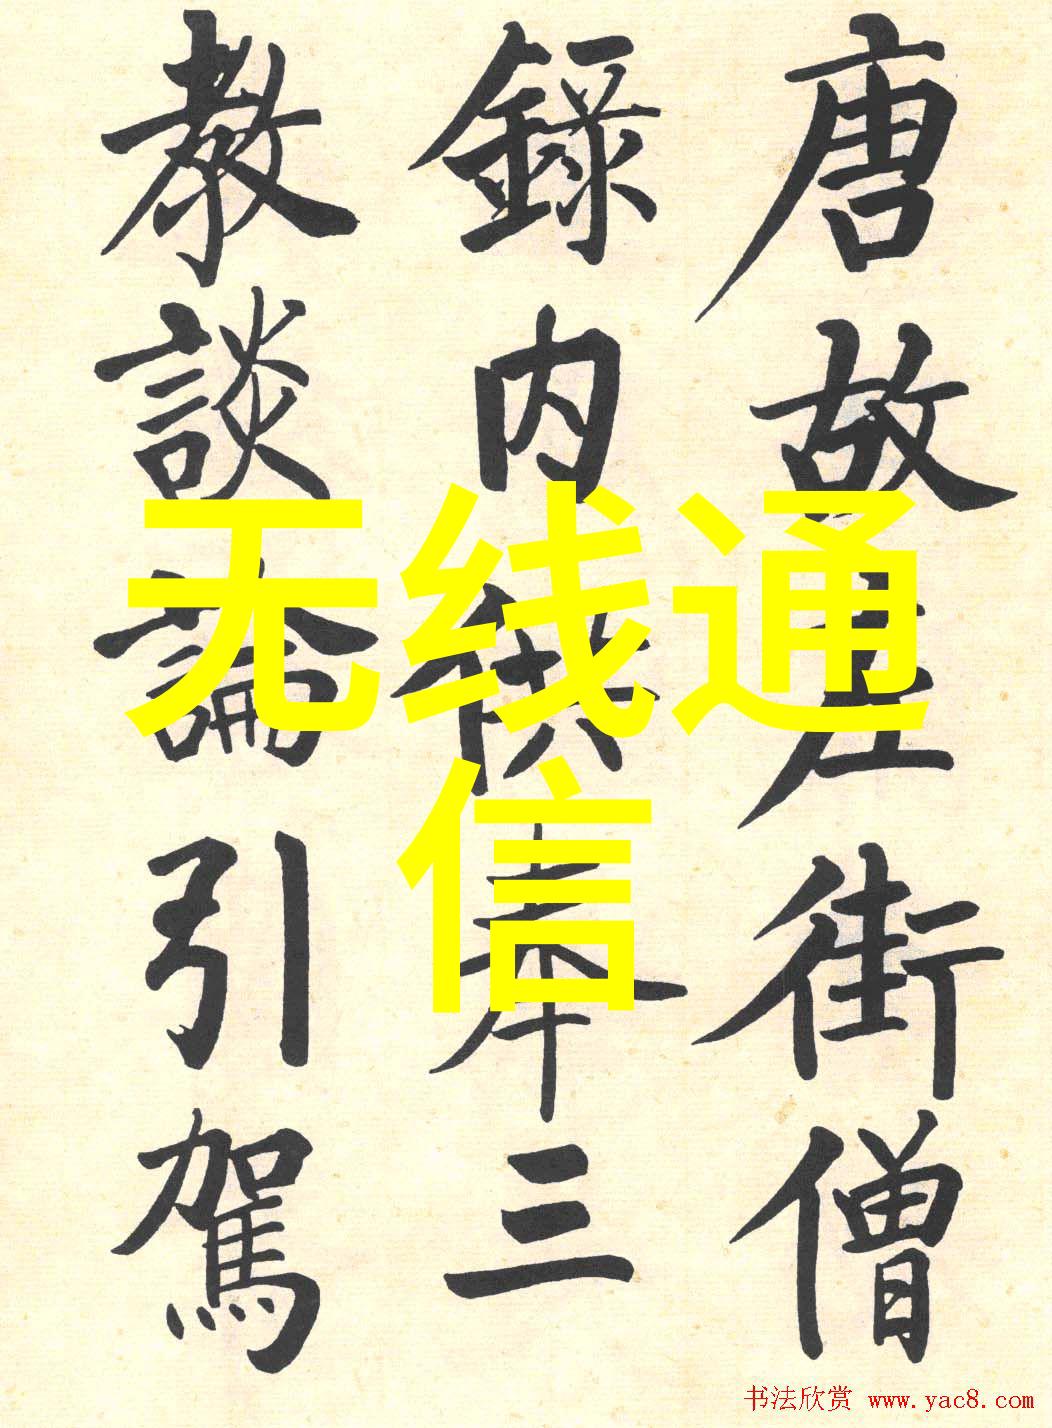 唐故左街僧
錄内供奉三
教談論引駕
无线通
信
书法欣赏 www.yac8.com